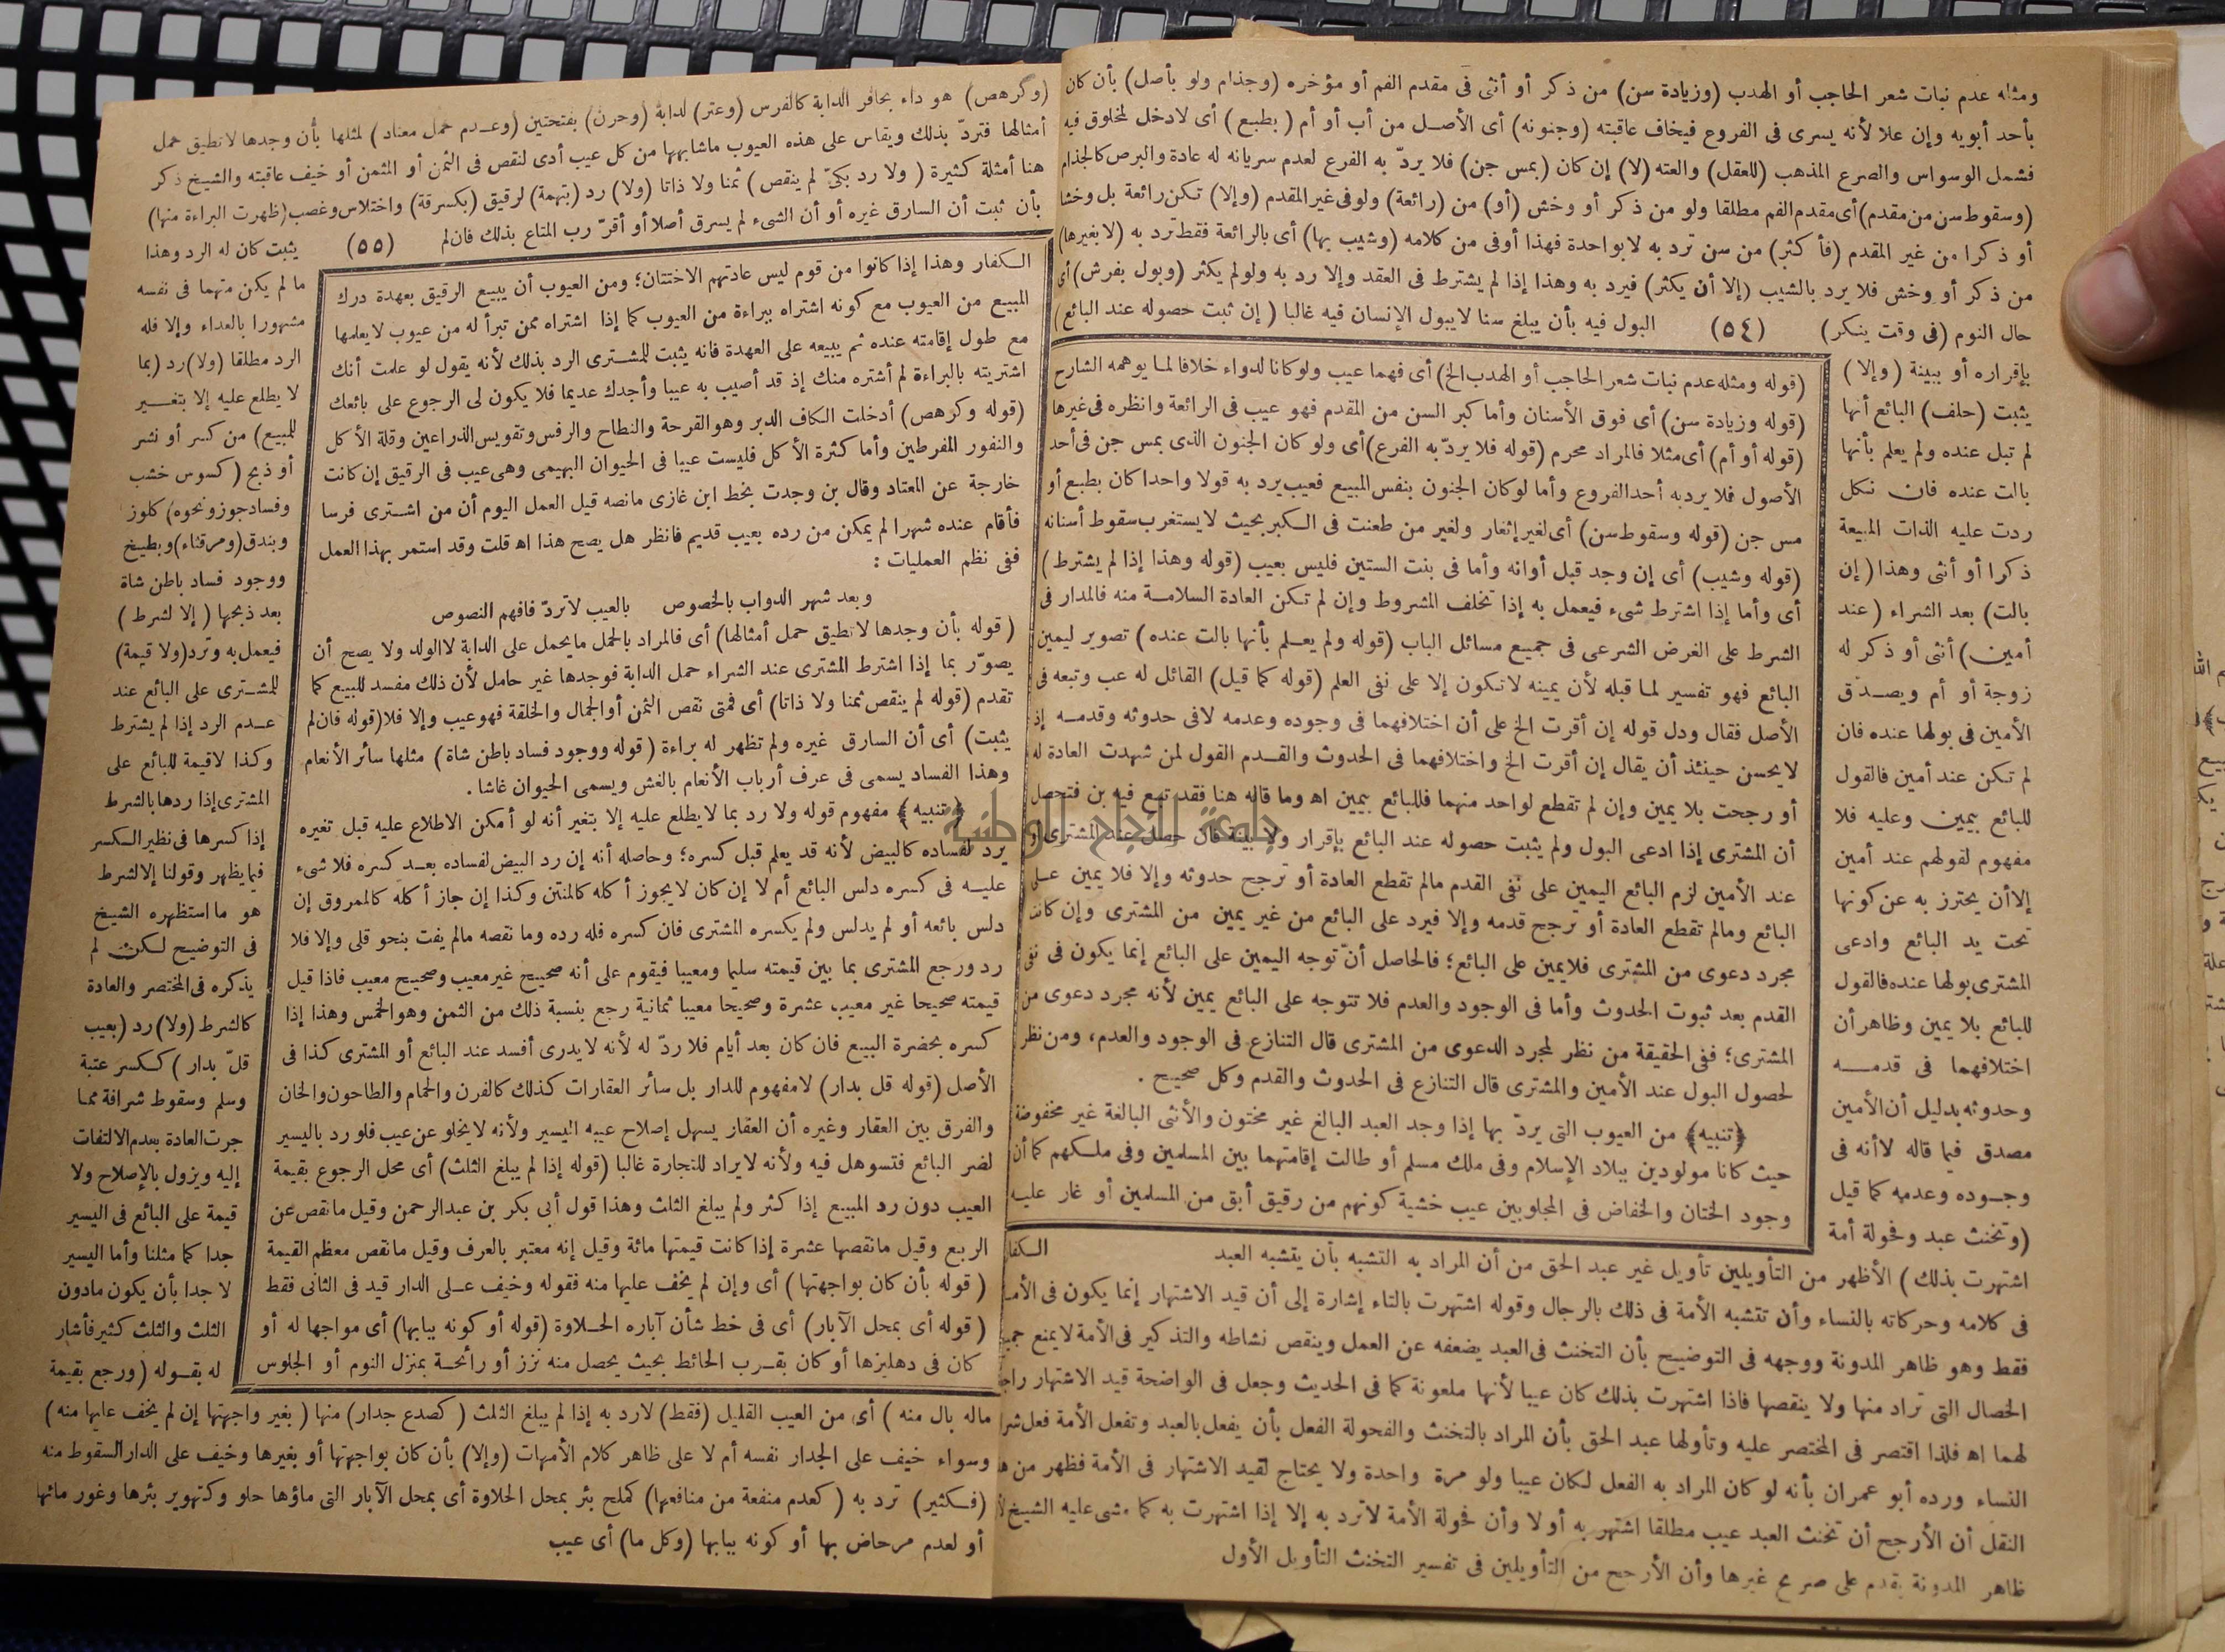 ومثله عدم نبات شعر الحاجب أو الهدب (وزيادة سن) من ذكر أو أنثى فى مقدم الفم أو مؤخره (وجذام ولو بأصل) بأن كان
بأحد أبويه وإن علا لأنه يسرى فى الفروع فيخاف عاقبته (وجنونه) أى الأصل من أب أو أم (بطبع) أى لادخل لمخلوق فيه
فشمل الوسواس والصرع المذهب (للعقل) والعته (لا) إن كان (بمس جن) فلا يردّ به الفرع لعدم سريانه له عادة والبرص كالجذام
(وسقوط سن من مقدم) أى مقدم الفم مطلقا ولو من ذكر أو وخش (أو) من (رائعة) ولو فى غير المقدم (وإلا) تكن رائعة بل وخشا
أو ذكرا من غير المقدم (فأكثر) من سن ترد به لا بواحدة فهذا أوفى من كلامه (وشيب بها) أى بالرائعة فقط ترد به (لا بغيرها)
من ذكر أو وخش فلا يرد بالشيب (إلا أن يكثر) فيرد به وهذا إذا لم يشترط فى العقد وإلا رد به ولو لم يكثر (وبول بفرش) أى
حال النوم (فى وقت ينكر) (٥٤) البول فيه بأن يبلغ سنا لا يبول الإنسان فيه غالبا (إن ثبت حصوله عند البائع)
بإقراره أو ببينة (وإلا)
يثبت (حلف) البائع أنها
لم تبل عنده ولم يعلم بأنها
بالت عنده فان نكل
ردت عليه الذات المبيعة
ذكرا أو أنثى وهذا (إن
بالت) بعد الشراء (عند
أمين) أنثى أو ذكر له
زوجة أو أم ويصدّق
الأمين فى بولها عنده فان
لم تكن عند أمين فالقول
للبائع بيمين وعليه فلا
مفهوم لقولهم عند أمين
إلا أن يحترز به عن كونها
تحت يد البائع وادعى
المشترى بولها عنده فالقول
للبائع بلا يمين وظاهر أن
اختلافهما فى قدمه
وحدوثه بدليل أن الأمين
مصدق فيما قاله لا أنه فى
وجوده وعدمه كما قيل
(وتخنث عبد وفحولة أمة
(قوله ومثله عدم نبات شعر الحاجب أو الهدب الخ) أى فهما عيب ولو كانا لدواء خلافا لما يوهمه الشارح
(قوله وزيادة سن) أى فوق الأسنان وأما كبر السن من المقدم فهو عيب فى الرائعة وانظره فى غيرها
(قوله أو أم) أى مثلا فالمراد محرم (قوله فلا يردّ به الفرع) أى ولو كان الجنون الذى بمس جن فى أحد
الأصول فلا يرد به أحد الفروع وأما لو كان الجنون بنفس المبيع فعيب يرد به قولا واحدا كان بطبع أو
مس جن (قوله وسقوط سن) أى لغير إثغار ولغير من طعنت فى الكبر بحيث لا يستغرب سقوط أسنانه
(قوله وشيب) أى إن وجد قبل أوانه وأما فى بنت الستين فليس بعيب (قوله وهذا إذا لم يشترط)
أى وأما إذا اشترط شىء فيعمل به إذا تخلف المشروط وإن لم تكن العادة السلامة منه فالمدار فى
الشرط على الغرض الشرعى فى جميع مسائل الباب (قوله ولم يعلم بأنها بالت عنده) تصوير ليمين
البائع فهو تفسير لما قبله لأن يمينه لا تكون إلا على نفى العلم (قوله كما قيل) القائل له عب وتبعه فى
الأصل فقال ودل قوله إن أقرت الخ على أن اختلافهما فى وجوده وعدمه لا فى حدوثه وقدمه إذ
لا يحسن حينئذ أن يقال إن أقرت الخ واختلافهما فى الحدوث والقدم القول لمن شهدت العادة له
أو رجحت بلا يمين وإن لم تقطع لواحد منهما فللبائع بيمين اه وما قاله هنا فقد تبع فيه بن فتحصل
أن المشترى إذا ادعى البول ولم يثبت حصوله عند البائع بإقرار ولا بينة فان حصل عند المشترى أو
عند الأمين لزم البائع اليمين على نفى القدم مالم تقطع العادة أو ترجح حدوثه وإلا فلا يمين على
البائع ومالم تقطع العادة أو ترجح قدمه وإلا فيرد على البائع من غير يمين من المشترى وإن كان
مجرد دعوى من المشترى فلا يمين على البائع؛ فالحاصل أنّ توجه اليمين على البائع إنما يكون فى نفى
القدم بعد ثبوت الحدوث وأما فى الوجود والعدم فلا تتوجه على البائع يمين لأنه مجرد دعوى من
المشترى؛ ففى الحقيقة من نظر لمجرد الدعوى من المشترى قال التنازع فى الوجود والعدم، ومن نظر
لحصول البول عند الأمين والمشترى قال التنازع فى الحدوث والقدم وكل صحيح.
﴿تنبيه﴾ من العيوب التى يردّ بها إذا وجد العبد البالغ غير مختون والأنثى البالغة غير مخفوضة
حيث كانا مولودين ببلاد الإسلام وفى ملك مسلم أو طالت إقامتهما بين المسلمين وفى ملكهم كما أن
وجود الختان والخفاض فى المجلوبين عيب خشية كونهم من رقيق أبق من المسلمين أو غار عليه
الكفار
اشتهرت بذلك) الأظهر من التأويلين تأويل غير عبد الحق من أن المراد به التشبه بأن يتشبه العبد
فى كلامه وحركاته بالنساء وأن تتشبه الأمة فى ذلك بالرجال وقوله اشتهرت بالتاء إشارة إلى أن قيد الاشتهار إنما يكون فى الأمة
فقط وهو ظاهر المدونة ووجهه فى التوضيح بأن التخنث فى العبد يضعفه عن العمل وينقص نشاطه والتذكير فى الأمة لا يمنع جميع
الخصال التى تراد منها ولا ينقصها فاذا اشتهرت بذلك كان عيبا لأنها ملعونة كما فى الحديث وجعل فى الواضحة قيد الاشتهار
لهما اه فلذا اقتصر فى المختصر عليه وتأولها عبد الحق بأن المراد بالتخنث والفحولة الفعل بأن يفعل بالعبد وتفعل الأمة فعل
النساء ورده أبو عمران بأنه لو كان المراد به الفعل لكان عيبا ولو مرة واحدة ولا يحتاج لقيد الاشتهار فى الأمة فظهر من
النقل أن الأرجح أن تخنث العبد عيب مطلقا اشتهر به أو لا وأن فحولة الأمة لا ترد به إلا إذا اشتهرت به كما مشى عليه الشيخ
ظاهر المدونة يقدم على صريح غيرها وأن الأرجح من التأويلين فى تفسير التخنث التأويل الأول
(وكرهص) هو داء بحافر الدابة كالفرس (وعثر) لدابة (وحرن) بفتحتين (وعدم حمل معتاد) لمثلها بأن وجدها لا تطيق حمل
أمثالها فتردّ بذلك ويقاس على هذه العيوب ماشابهها من كل عيب أدى لنقص فى الثمن أو المثمن أو خيف عاقبته والشيخ ذكر
هنا أمثلة كثيرة (ولا رد بكىّ لم ينقص) ثمنا ولا ذاتا (ولا) رد (بتهمة) لرقيق (بكسرقة) واختلاس وغصب (ظهرت البراءة منها)
بأن ثبت أن السارق غيره أو أن الشىء لم يسرق أصلا أو أقرّ رب المتاع بذلك فان لم (٥٥) يثبت كان له الرد وهذا
ما لم يكن متهما فى نفسه
مشهورا بالعداء وإلا فله
الرد مطلقا (ولا) رد (بما
لا يطلع عليه إلا بتغير
للمبيع) من كسر أو نشر
أو ذبح (كسوس خشب
وفساد جوز ونحوه) كلوز
وبندق (ومر قثاء) وبطيخ
ووجود فساد باطن شاة
بعد ذبحها (إلا لشرط)
فيعمل به وترد (ولا قيمة)
للمشترى على البائع عند
عدم الرد إذا لم يشترط
وكذا لا قيمة للبائع على
المشترى إذا ردها بالشرط
إذا كسرها فى نظير الكسر
فيما يظهر وقولنا إلا لشرط
هو ما استظهره الشيخ
فى التوضيح لكن لم
يذكره فى المختصر والعادة
كالشرط (ولا) رد (بعيب
قلّ بدار) ككسر عتبة
وسلم وسقوط شرافة مما
جرت العادة بعدم الالتفات
إليه ويزول بالإصلاح ولا
قيمة على البائع فى اليسير
جدا كما مثلنا وأما اليسير
لا جدا بأن يكون مادون
الثلث والثلث كثير فأشار
له بقوله (ورجع بقيمة
الكفار وهذا إذا كانوا من قوم ليس عادتهم الاختتان؛ ومن العيوب أن يبيع الرقيق بعهدة درك
المبيع من العيوب مع كونه اشتراه ببراءة من العيوب كما إذا اشتراه ممن تبرأ له من عيوب لا يعلمها
مع طول إقامته عنده ثم يبيعه على العهدة فانه يثبت للمشترى الرد بذلك لأنه يقول لو علمت أنك
اشتريته بالبراءة لم أشتره منك إذ قد أصيب به عيبا وأجدك عديما فلا يكون لى الرجوع على بائعك
(قوله وكرهص) أدخلت الكاف الدبر وهو القرحة والنطاح والرفس وتقويس الذراعين وقلة الأكل
والنفور المفرطين وأما كثرة الأكل فليست عيبا فى الحيوان البهيمى وهى عيب فى الرقيق إن كانت
خارجة عن المعتاد وقال بن وجدت بخط ابن غازى مانصه قيل العمل اليوم أن من اشترى فرسا
فأقام عنده شهرا لم يمكن من رده بعيب قديم فانظر هل يصح هذا اه قلت وقد استمر بهذا العمل
ففى نظم العمليات:
وبعد شهر الدواب بالخصوص بالعيب لا تردّ فافهم النصوص
(قوله بأن وجدها لا تطيق حمل أمثالها) أى فالمراد بالحمل ما يحمل على الدابة لا الولد ولا يصح أن
يصوّر بما إذا اشترط المشترى عند الشراء حمل الدابة فوجدها غير حامل لأن ذلك مفسد للبيع كما
تقدم (قوله لم ينقص ثمنا ولا ذاتا) أى فمتى نقص الثمن أو الجمال والخلقة فهو عيب وإلا فلا (قوله فان لم
يثبت) أى أن السارق غيره ولم تظهر له براءة (قوله ووجود فساد باطن شاة) مثلها سائر الأنعام
وهذا الفساد يسمى فى عرف أرباب الأنعام بالغش ويسمى الحيوان غاشا.
﴿تنبيه﴾ مفهوم قوله ولا رد بما لا يطلع عليه إلا بتغير أنه لو أمكن الاطلاع عليه قبل تغيره
يرد لفساده كالبيض لأنه قد يعلم قبل كسره؛ وحاصله أنه إن رد البيض لفساده بعد كسره فلا شىء
عليه فى كسره دلس البائع أم لا إن كان لا يجوز أكله كالمنتن وكذا إن جاز أكله كالممروق إن
دلس بائعه أو لم يدلس ولم يكسره المشترى فان كسره فله رده وما نقصه مالم يفت بنحو قلى وإلا فلا
رد ورجع المشترى بما بين قيمته سليما ومعيبا فيقوم على أنه صحيح غير معيب وصحيح معيب فاذا قيل
قيمته صحيحا غير معيب عشرة وصحيحا معيبا ثمانية رجع بنسبة ذلك من الثمن وهو الخمس وهذا إذا
كسره بحضرة البيع فان كان بعد أيام فلا ردّ له لأنه لا يدرى أفسد عند البائع أو المشترى كذا فى
الأصل (قوله قل بدار) لا مفهوم للدار بل سائر العقارات كذلك كالفرن والحمام والطاحون والخان
والفرق بين العقار وغيره أن العقار يسهل إصلاح عيبه اليسير ولأنه لا يخلو عن عيب فلو رد باليسير
لضر البائع فتسوهل فيه ولأنه لا يراد للتجارة غالبا (قوله إذا لم يبلغ الثلث) أى محل الرجوع بقيمة
العيب دون رد المبيع إذا كثر ولم يبلغ الثلث وهذا قول أبى بكر بن عبد الرحمن وقيل ما نقص عن
الربع وقيل ما نقصها عشرة إذا كانت قيمتها مائة وقيل إنه معتبر بالعرف وقيل ما نقص معظم القيمة
(قوله بأن كان بواجهتها) أى وإن لم يخف عليها منه فقوله وخيف على الدار قيد فى الثانى فقط
(قوله أى بمحل الآبار) أى فى خط شأن آباره الحلاوة (قوله أو كونه ببابها) أى مواجها له أو
كان فى دهليزها أو كان بقرب الحائط بحيث يحصل منه نزز أو رائحة بمنزل النوم أو الجلوس
ماله بال منه) أى من العيب القليل (فقط) لا رد به إذا لم يبلغ الثلث (كصدع جدار) منها (بغير واجهتها إن لم يخف عليها منه)
وسواء خيف على الجدار نفسه أم لا على ظاهر كلام الأمهات (وإلا) بأن كان بواجهتها أو بغيرها وخيف على الدار السقوط منه
(فكثير) ترد به (كعدم منفعة من منافعها) كملح بئر بمحل الحلاوة أى بمحل الآبار التى ماؤها حلو وكتهوير بئرها وغور مائها
أو لعدم مرحاض بها أو كونه ببابها (وكل ما) أى عيب
جامعة النجاح الوطنية